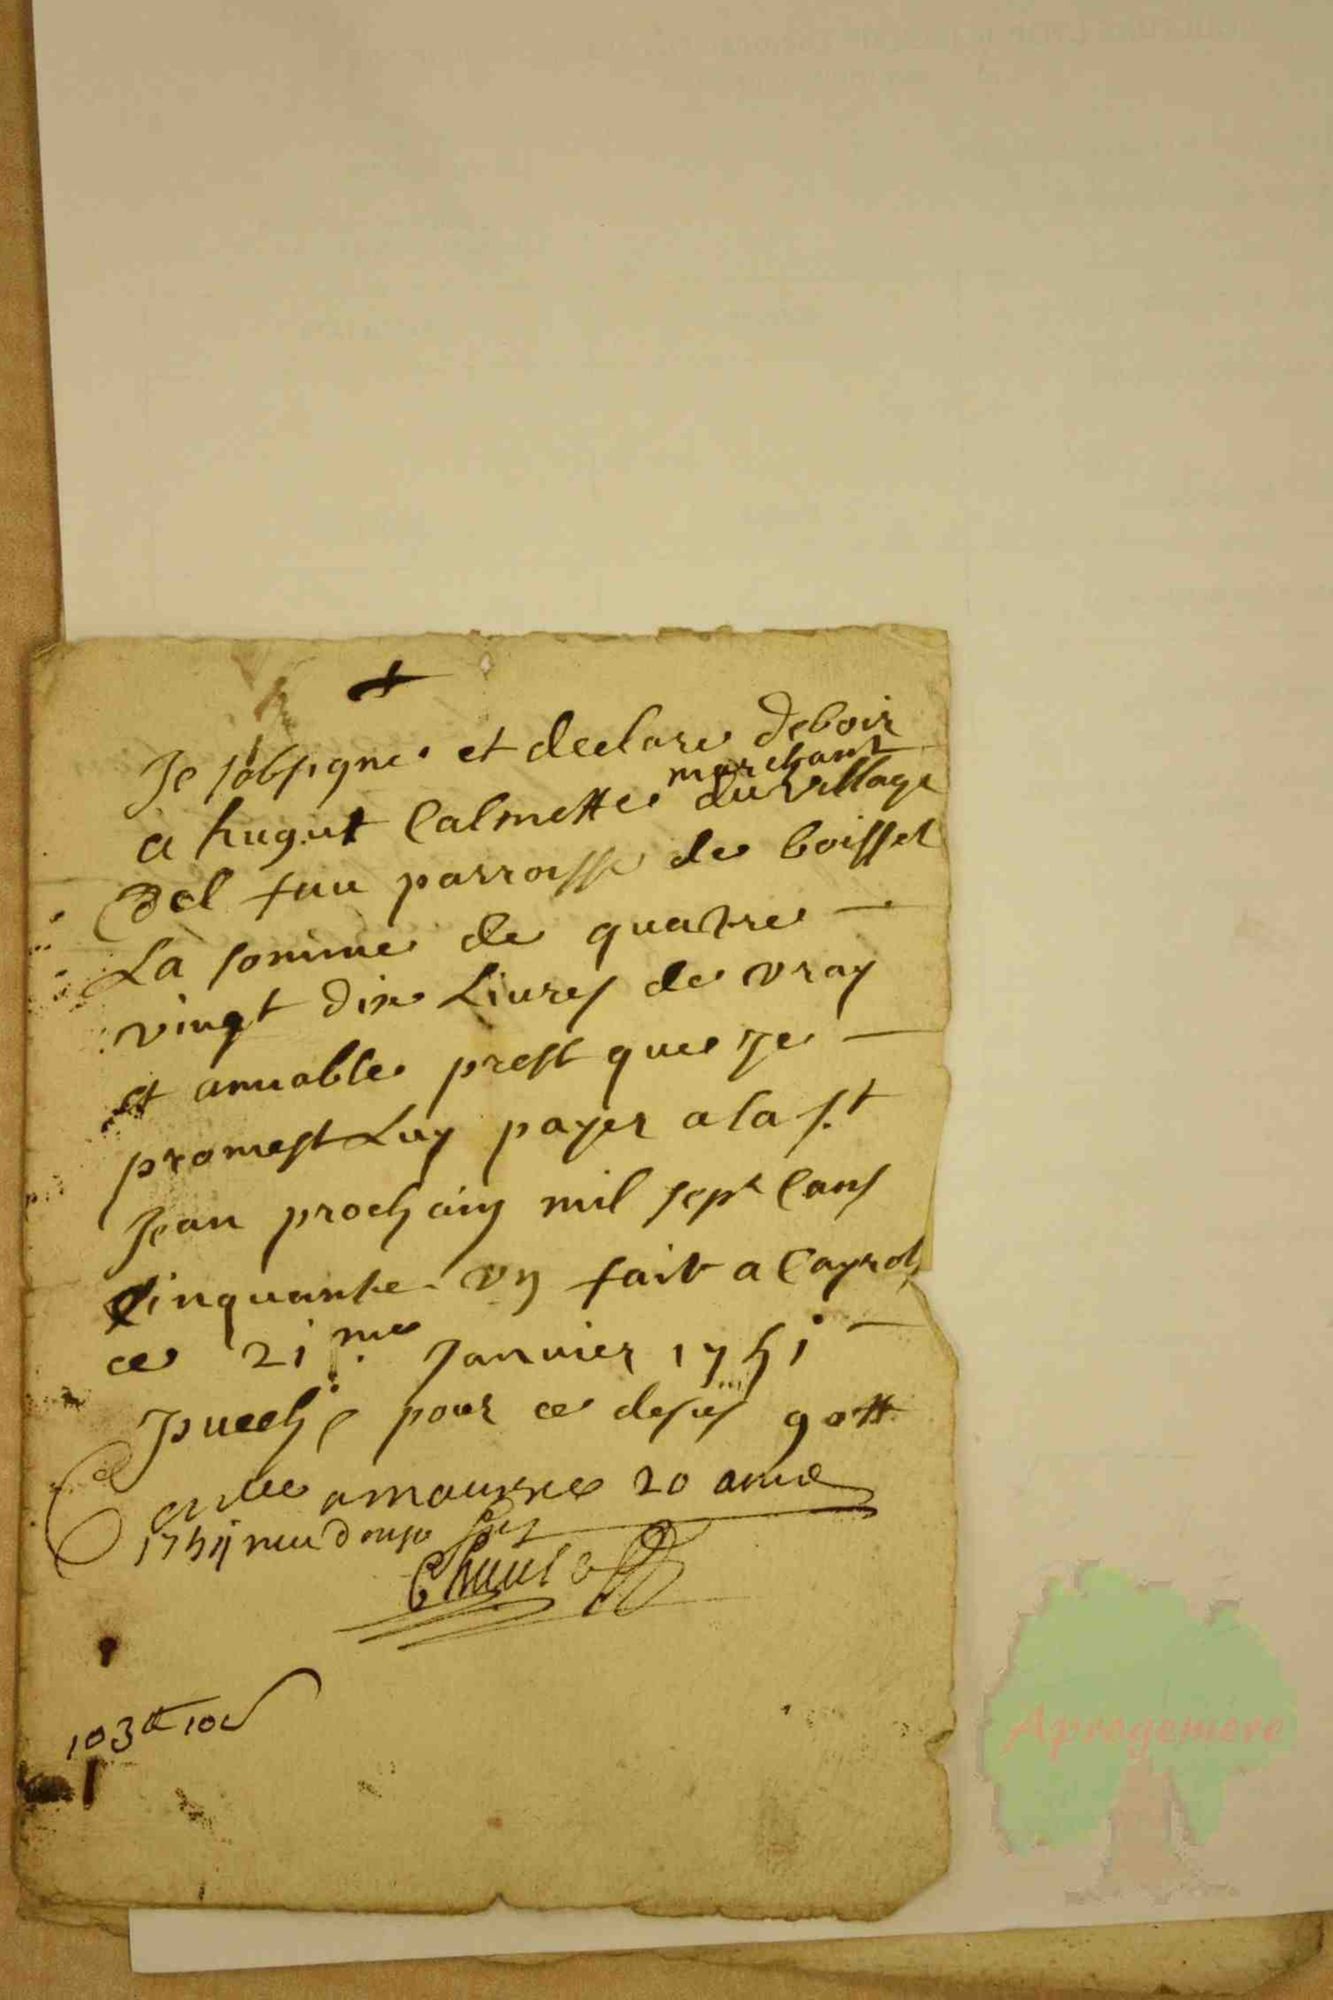 +
Je sobsigne et declare deboir
marchant
a hugut Calmette du village
Del fau parroisse de boisset
La somme de quatre —
vingt dix Livres de vray
et amiable prest que je —
promest Luy payer a la s.t
Jean prochain mil sept Cans
Cinquante un fait a Cayrols
ce 21 me Janvier 1751 —
puech pour ce desus 90 tt
a maurs 20
103 tt 10 s
Aprogemere